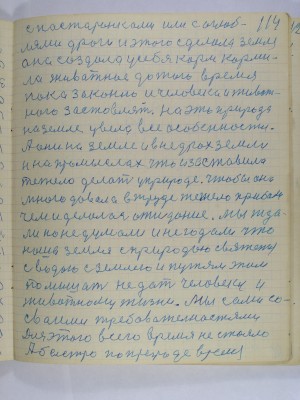 114
с постаринками или с оглоб-
лями дроги и этого сделала земля
она создала у себя корм корми-
ла животные до того время
пока законно и человека и живот-
ного заставлят. На эть природа
на земле увела все особенности.
А они на земле и в недрах земли
и на промыслах что и заставила
тяжело делат у природе. Чтобы она
много давала в труде тяжело
чем и делалося ожидание. Мы жда-
ли но не думали и не гадали что
наша земля с природою связану
с водою с землею и путям этим
помишат не дат человеку и
животному жизне. Мы сами со-
своими требовательностями
Для этого всего время не стояло
А быстро по природе время